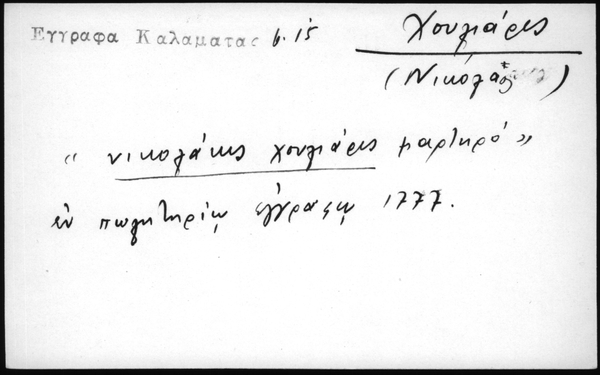 Εγγραφα Καλαματας 6. 15
Χουλιάρης
(Νικόλαος)
« νικολάκις χουλιάρις μαρτιρό »
ἐν πωλητηρίῳ ἐγγράφῳ 1777.